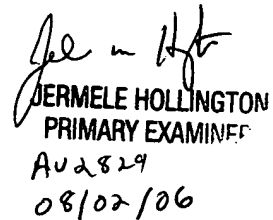 JERMELE HOLLINGTON
PRIMARY EXAMINER
AU 2829
08/02/06